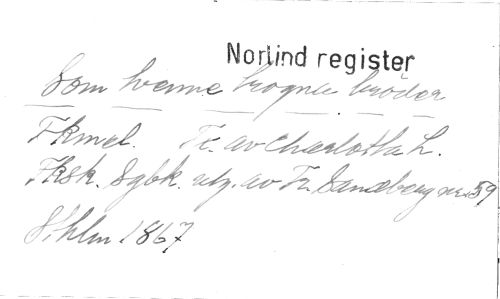 Norlind register
Som hvenne trogne bröder
Fkmel. Tr. av Charlotta L.
Fksk. Sgbk. utg. av Fr. Sandberg nr. 59
Sthlm 1867